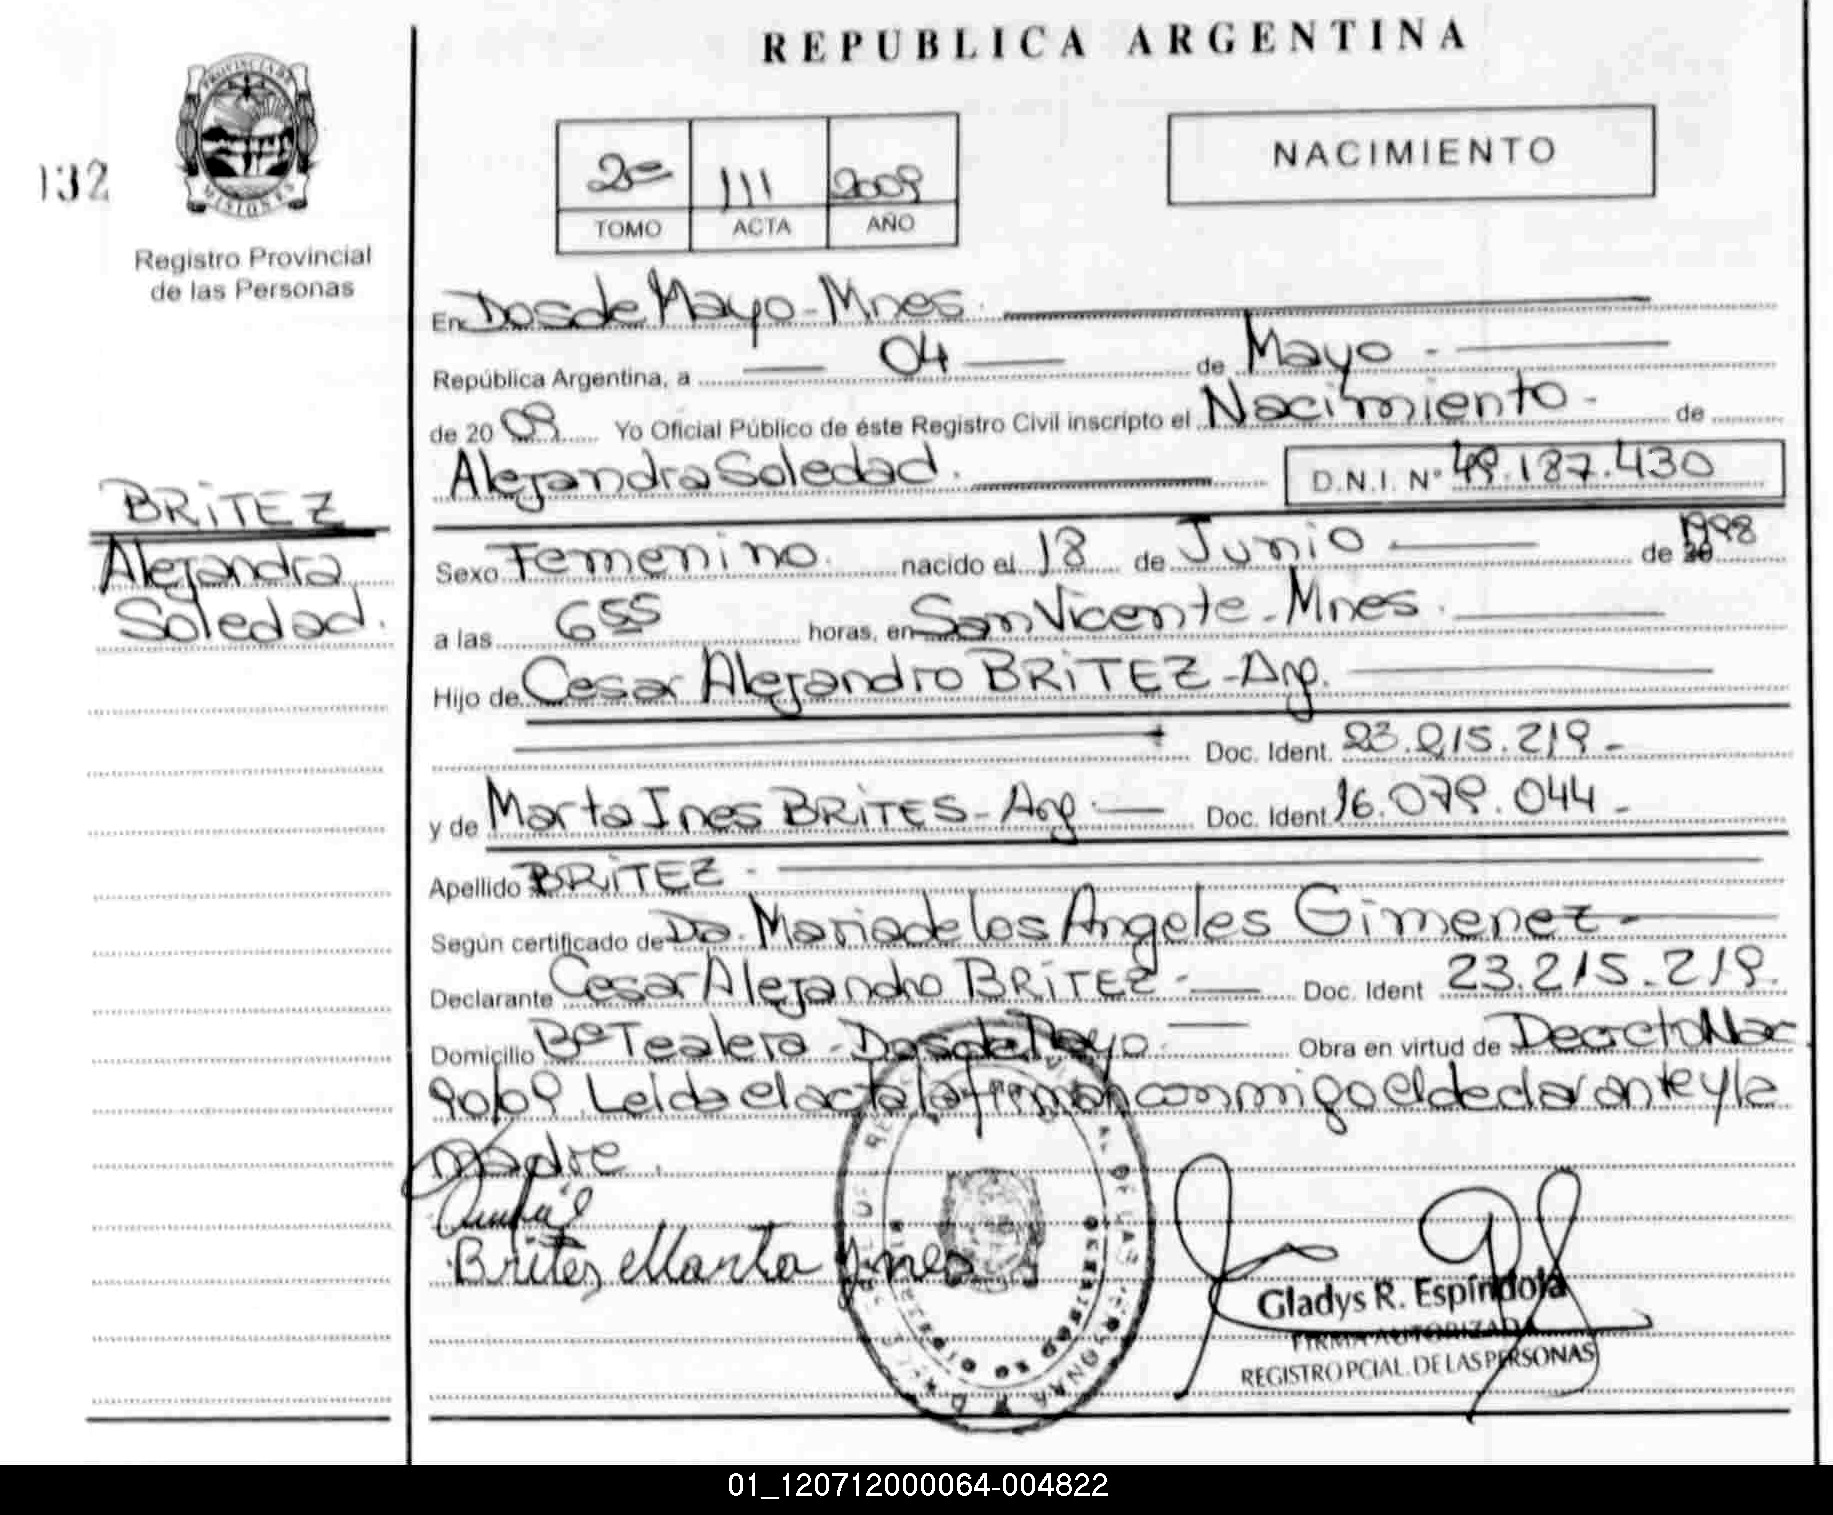 REPUBLICA ARGENTINA
PROVINCIA DE
MISIONES
132
Registro Provincial
de las Personas
2º 111 2009
TOMO ACTA AÑO
NACIMIENTO
En Dos de Mayo - Mnes.
República Argentina, a 04 de Mayo -
de 2009 Yo Oficial Público de éste Registro Civil inscripto el Nacimiento - de
Alejandra Soledad. D.N.I. Nº 49.187.430
BRITEZ
Alejandra
Soledad.
Sexo Femenino. nacido el 18 de Junio de 1998
a las 6 55 horas, en San Vicente - Mnes.
Hijo de Cesar Alejandro BRITEZ - Arg.
Doc. Ident. 23.215.219 -
y de Marta Ines BRITES - Arg. Doc. Ident. 16.079.044 -
Apellido BRITEZ -
Según certificado de Da. Maria de los Angeles Gimenez -
Declarante Cesar Alejandro BRITEZ - Doc. Ident 23.215.219.
Domicilio Bº Tealera - Dos de Mayo. Obra en virtud de Decreto Nac
90/09. Leida el acta la firman conmigo el declarante y la
Madre.
Britez Marta Ynes
Gladys R. Espíndola
FIRMA AUTORIZADA
REGISTRO PCIAL. DE LAS PERSONAS
01_120712000064-004822